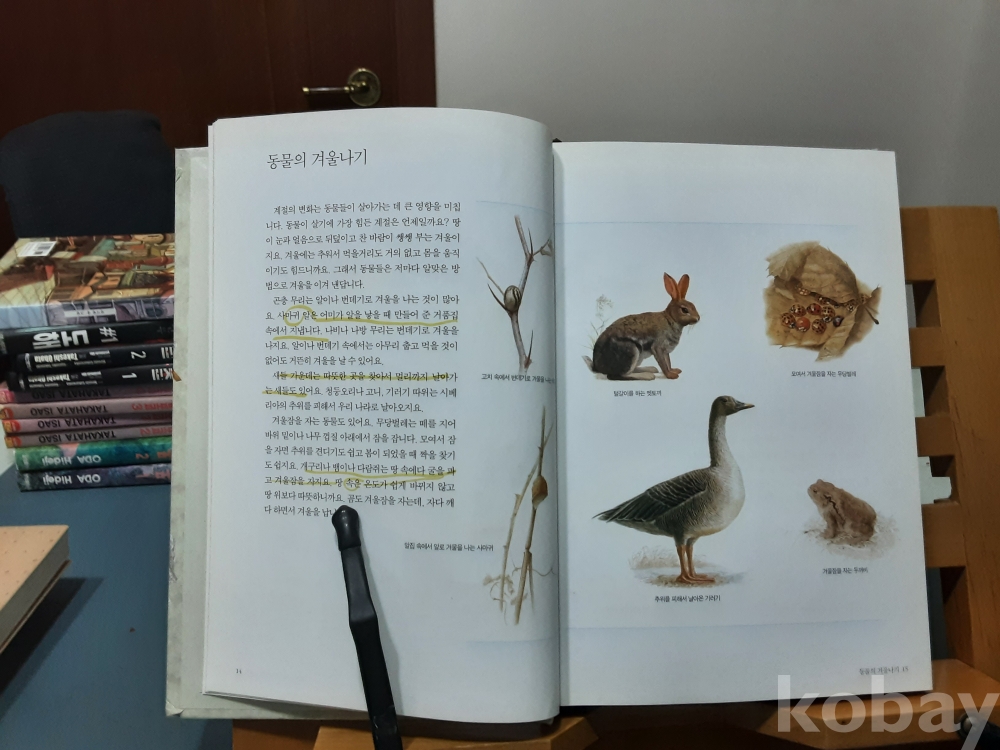 동물의 겨울나기
계절의 변화는 동물들이 살아가는 데 큰 영향을 미칩
니다. 동물이 살기에 가장 힘든 계절은 언제일까요? 땅
이 눈과 얼음으로 뒤덮이고 찬 바람이 쌩쌩 부는 겨울이
지요. 겨울에는 추워서 먹을거리도 거의 없고 몸을 움직
이기도 힘드니까요. 그래서 동물들은 저마다 알맞은 방
법으로 겨울을 이겨 낸답니다.
곤충 무리는 알이나 번데기로 겨울을 나는 것이 많아
요. 사마귀 알은 어미가 알을 낳을 때 만들어 준 거품집
속에서 지냅니다. 나비나 나방 무리는 번데기로 겨울을
나지요. 알이나 번데기 속에서는 아무리 춥고 먹을 것이
없어도 거뜬히 겨울을 날 수 있어요.
새들 가운데는 따뜻한 곳을 찾아서 멀리까지 날아가
는 새들도 있어요. 청둥오리나 고니, 기러기 따위는 시베
리아의 추위를 피해서 우리 나라로 날아오지요.
겨울잠을 자는 동물도 있어요. 무당벌레는 떼를 지어
바위 밑이나 나무 껍질 아래에서 잠을 잡니다. 모여서 잠
을 자면 추위를 견디기도 쉽고 봄이 되었을 때 짝을 찾기
도 쉽지요. 개구리나 뱀이나 다람쥐는 땅 속에다 굴을 파
고 겨울잠을 자지요. 땅 속은 온도가 쉽게 바뀌지 않고
땅 위보다 따뜻하니까요. 곰도 겨울잠을 자는데, 자다 깨
다 하면서 겨울을
고치 속에서 번데기로 겨울을
알집 속에서 알로 겨울을 나는 사마귀
14
털갈이를 하는 멧토끼
모여서 겨울잠을 자는 무당벌레
추위를 피해서 날아온 기러기
겨울잠을 자는 두꺼비
동물의 겨울나기 15
#1
도해
2
Takeshi Obata
1
Takeshi Obata
TAKAHATA ISAO
TAKAHATA ISAO
TAKAHATA ISAO
ODA Hideji 2
ODA Hideji
kobay